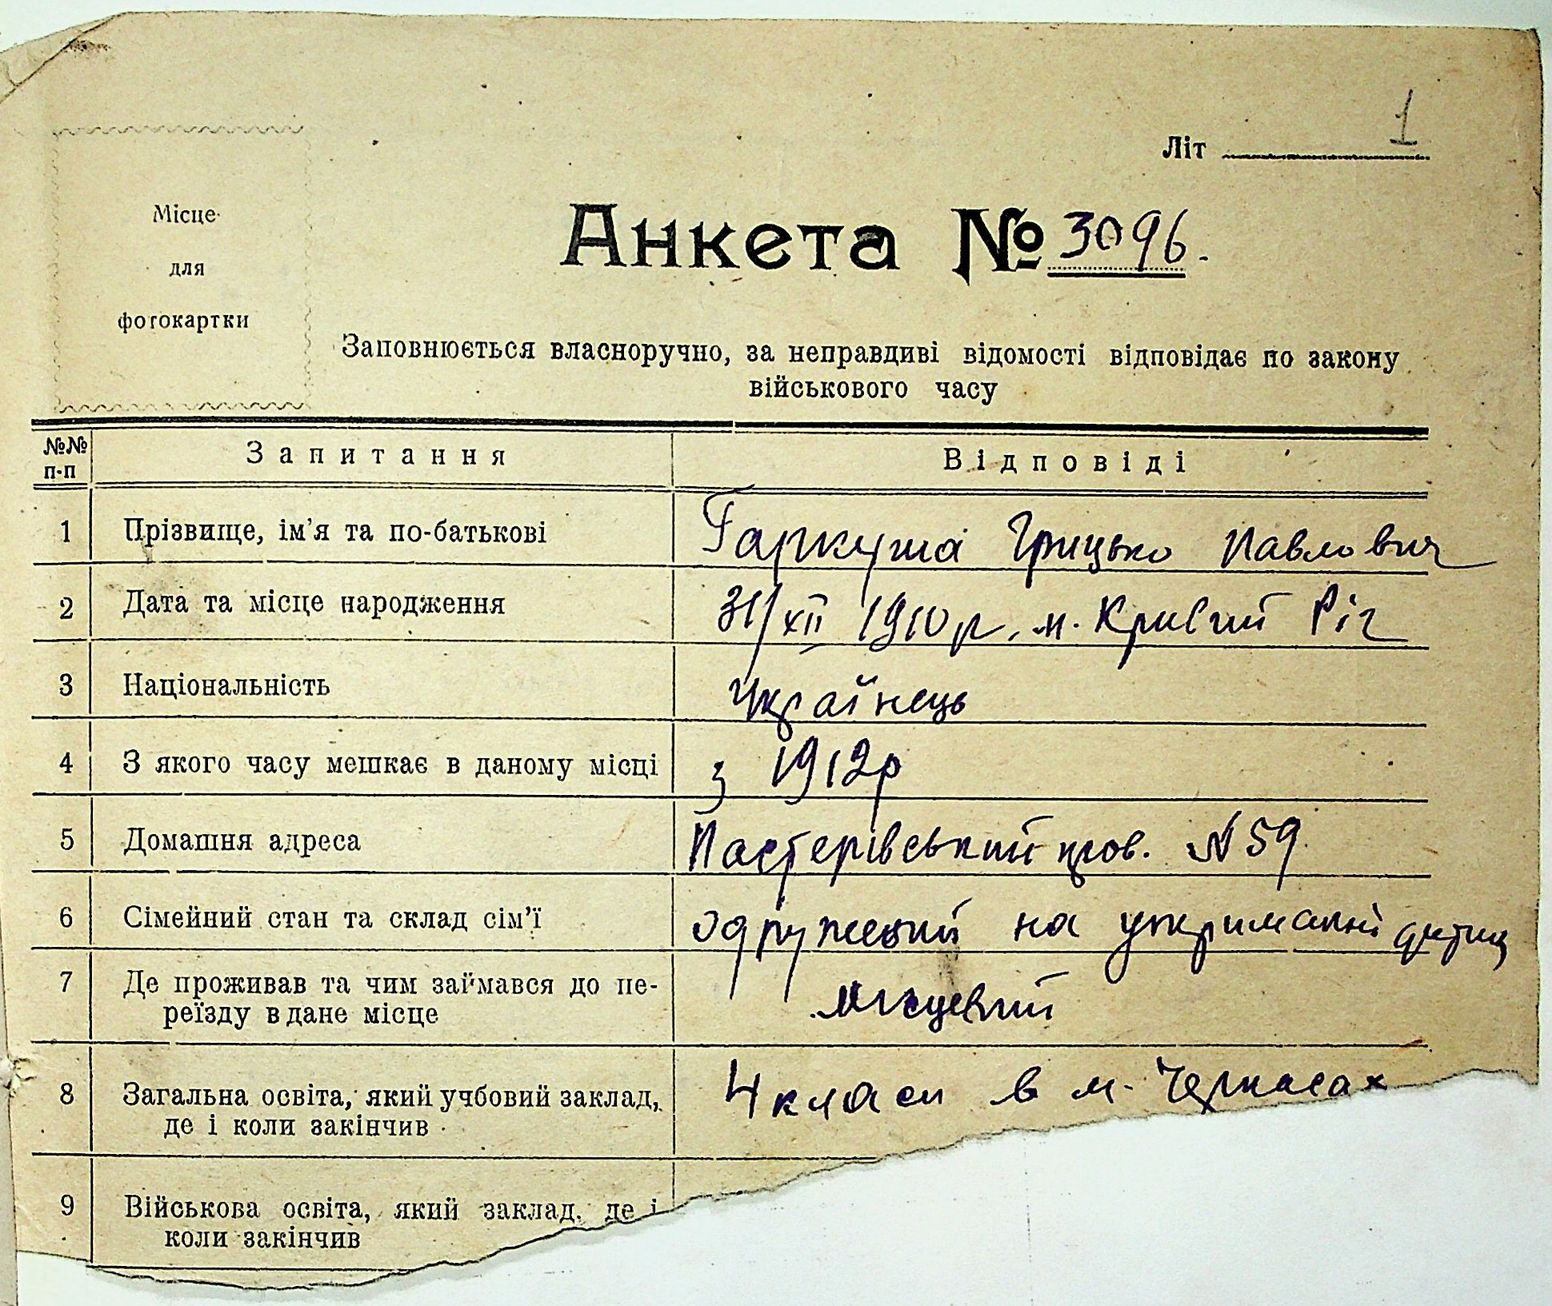 Літ 1
Місце
для
фотокартки
Анкета № 3096.
Заповнюється власноручно, за неправдиві відомості відповідає по закону
військового часу
№№
п-п
Запитання
Відповіді
1 Прізвище, ім'я та по-батькові Гаркуша Грицько Павлович
2 Дата та місце народження 31/XII 1910 р. м. Кривий Ріг
3 Національність Українець
4 З якого часу мешкає в даному місці з 1912р
5 Домашня адреса Пастерівський пров. № 59
6 Сімейний стан та склад сім'ї одружений на утриманні дитина
7 Де проживав та чим займався до пе-
реїзду в дане місце місцевий
8 Загальна освіта, який учбовий заклад, 4 класи в м. Черкасах
де і коли закінчив
9 Військова освіта, який заклад, де і
коли закінчив